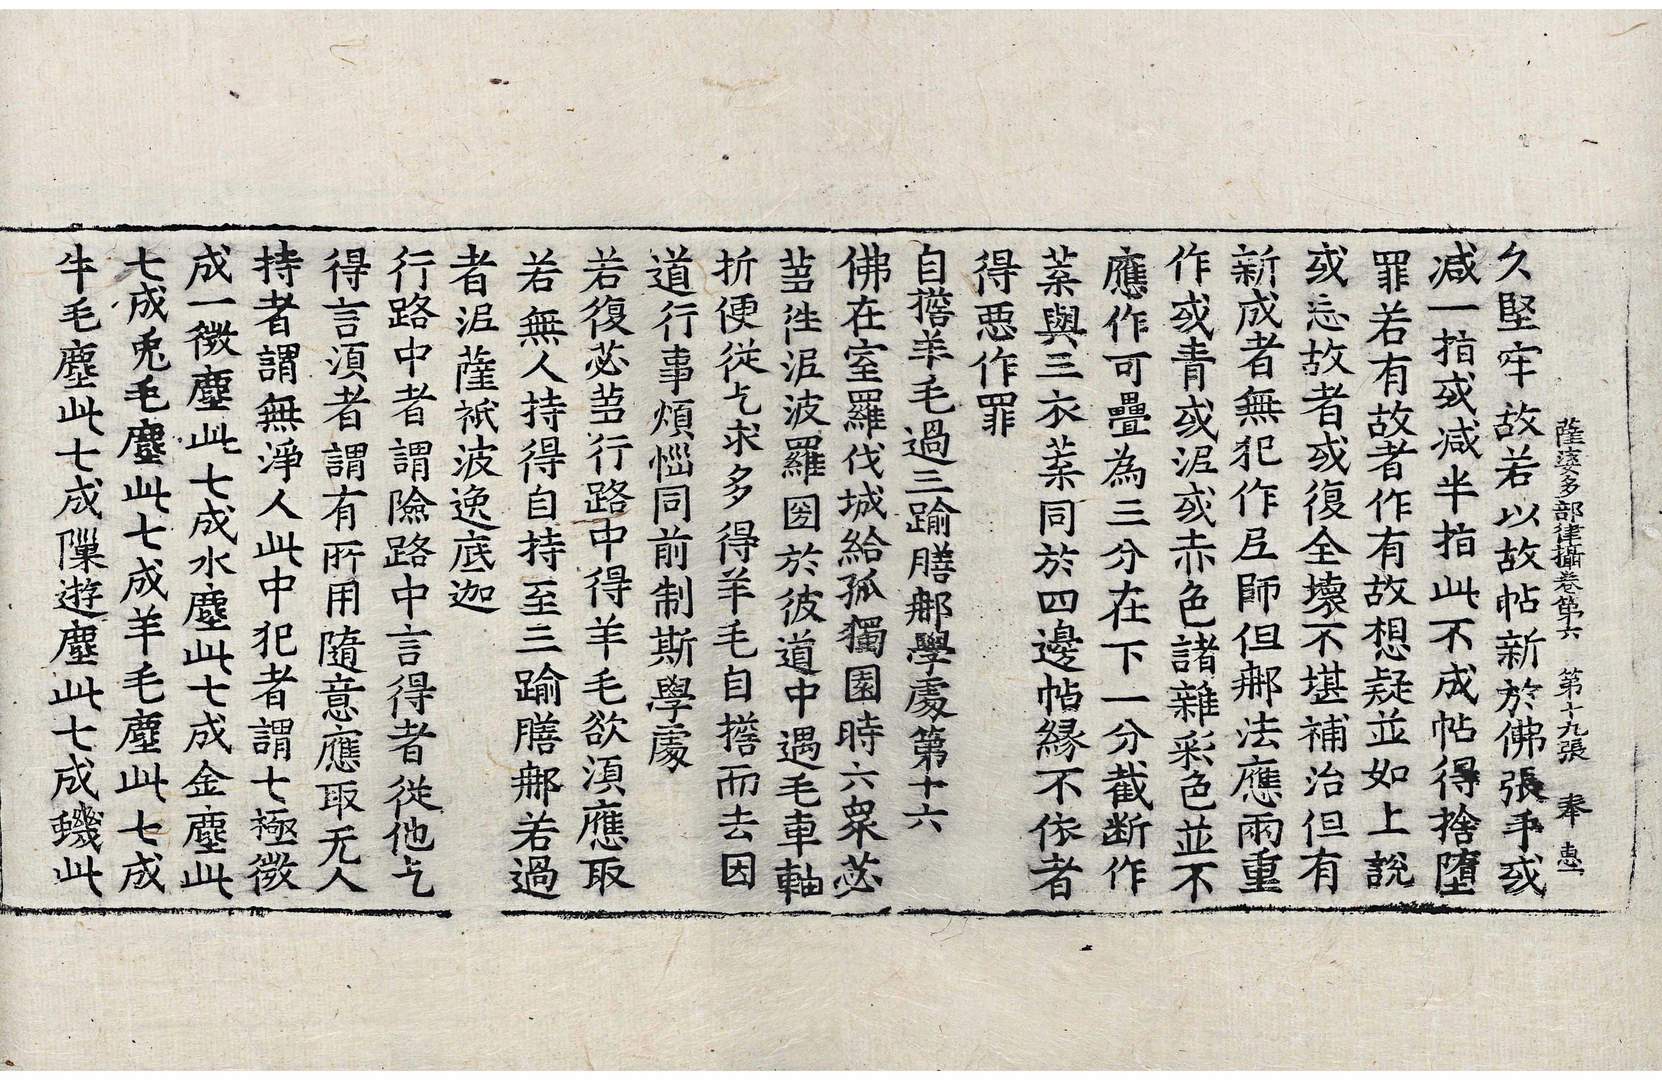 薩婆多部律攝卷第六 第十九張 奉 惠
久堅牢故若以故帖新於佛張手或
减一指或减半指此不成帖得捨墮
罪若有故者作有故想疑並如上說
或忘故者或復全壞不堪補治但有
新成者無犯作𡰱師但郍法應兩重
作或青或泥或赤色諸雜彩色並不
應作可疊為三分在下一分截断作
葉與三衣葉同於四邊帖緣不依者
得惡作罪
自擔羊毛過三踰膳郍學處第十六
佛在室羅伐城給孤獨園時六衆苾
蒭往泥波羅國於彼道中遇毛車軸
折便從乞求多得羊毛自擔而去因
道行事煩惱同前制斯學處
若復苾蒭行路中得羊毛欲湏應取
若無人持得自持至三踰膳郍若過
者泥薩祇波逸底迦
行路中者謂險路中言得者從他乞
得言湏者謂有所用隨意應取无人
持者謂無淨人此中犯者謂七極微
成一微塵此七成水塵此七成金塵此
七成兎毛塵此七成羊毛塵此七成
牛毛塵此七成隟遊塵此七成蟣此